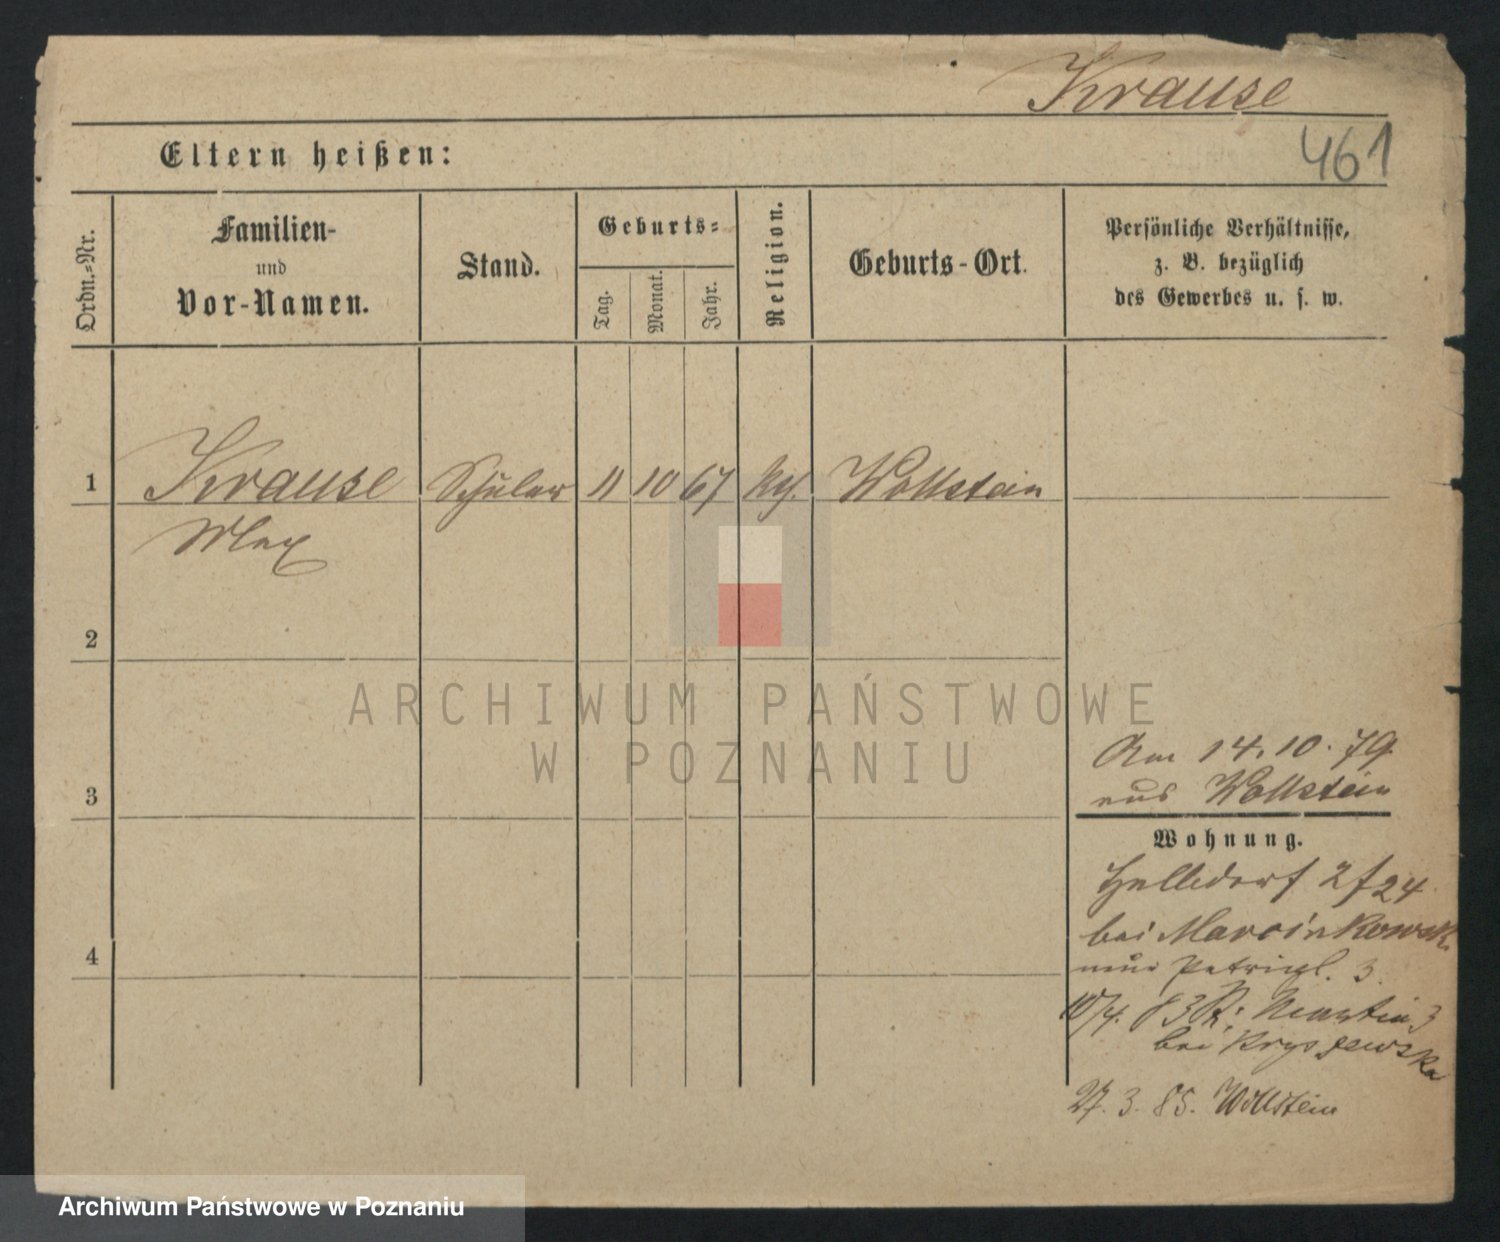 Krause
461
Eltern heißen:
Ordn.-Nr.
Familien-
und
Vor-Namen.
Stand.
Geburts-
Tag.
Monat.
Jahr.
Religion.
Geburts-Ort.
Persönliche Verhältnisse,
z. B. bezüglich
des Gewerbes u. s. w.
1 Krause Schüler 11 10 67 Wollstein
Max
2
ARCHIWUM PAŃSTWOWE
W POZNANIU
Am 14. 10. 79
aus Wollstein
3
Wohnung.
Halbdorf 24
bei Marcinkowski
4
3.
10/4. 83 Martin 3
bei
27. 3. 85. Wollstein
Archiwum Państwowe w Poznaniu